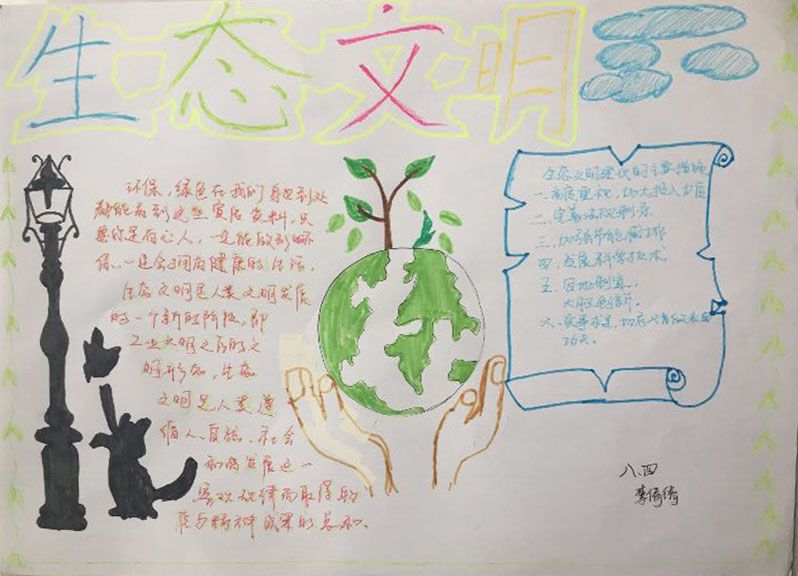 生态文明
环保，绿色在我们身边到处
都能看到这些宣传资料，只
要你是有心人，一定能做到环
保，一定会拥有健康的生活，
生态文明是人类文明发展
的一个新的阶段，即
工业文明之后的文
明形态，生态
文明是人类遵
循人、自然、社会
和谐发展这一
客观规律而取得的
质与精神成果的总和。
生态文明建设的主要措施
一、高度重视，加大投入力度
二、完善法规制度
三、加强节能减排
四、发展科学技术
五、因地制宜
大胆创新
六、实事求是，切忌
功夫。
八、四
李倩倩